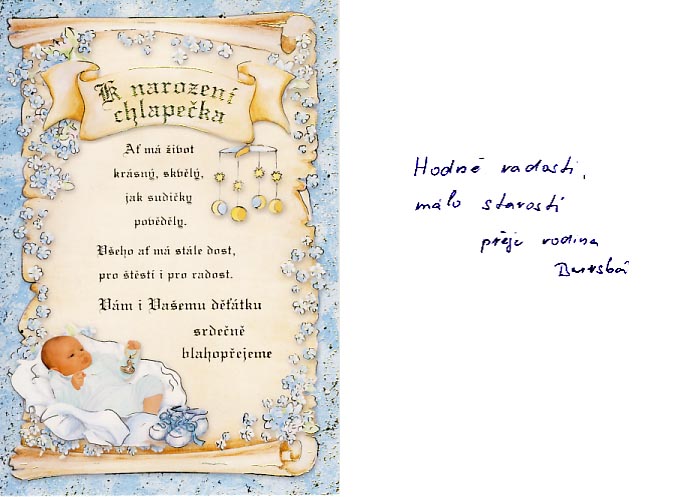 K narození
chlapečka
Ať má život
krásný, skvělý,
jak sudičky
pověděly.
Všeho ať má stále dost,
pro štěstí i pro radost.
Vám i Vašemu děťátku
srdečně
blahopřejeme
Hodně radosti,
málo starostí
přeje rodina